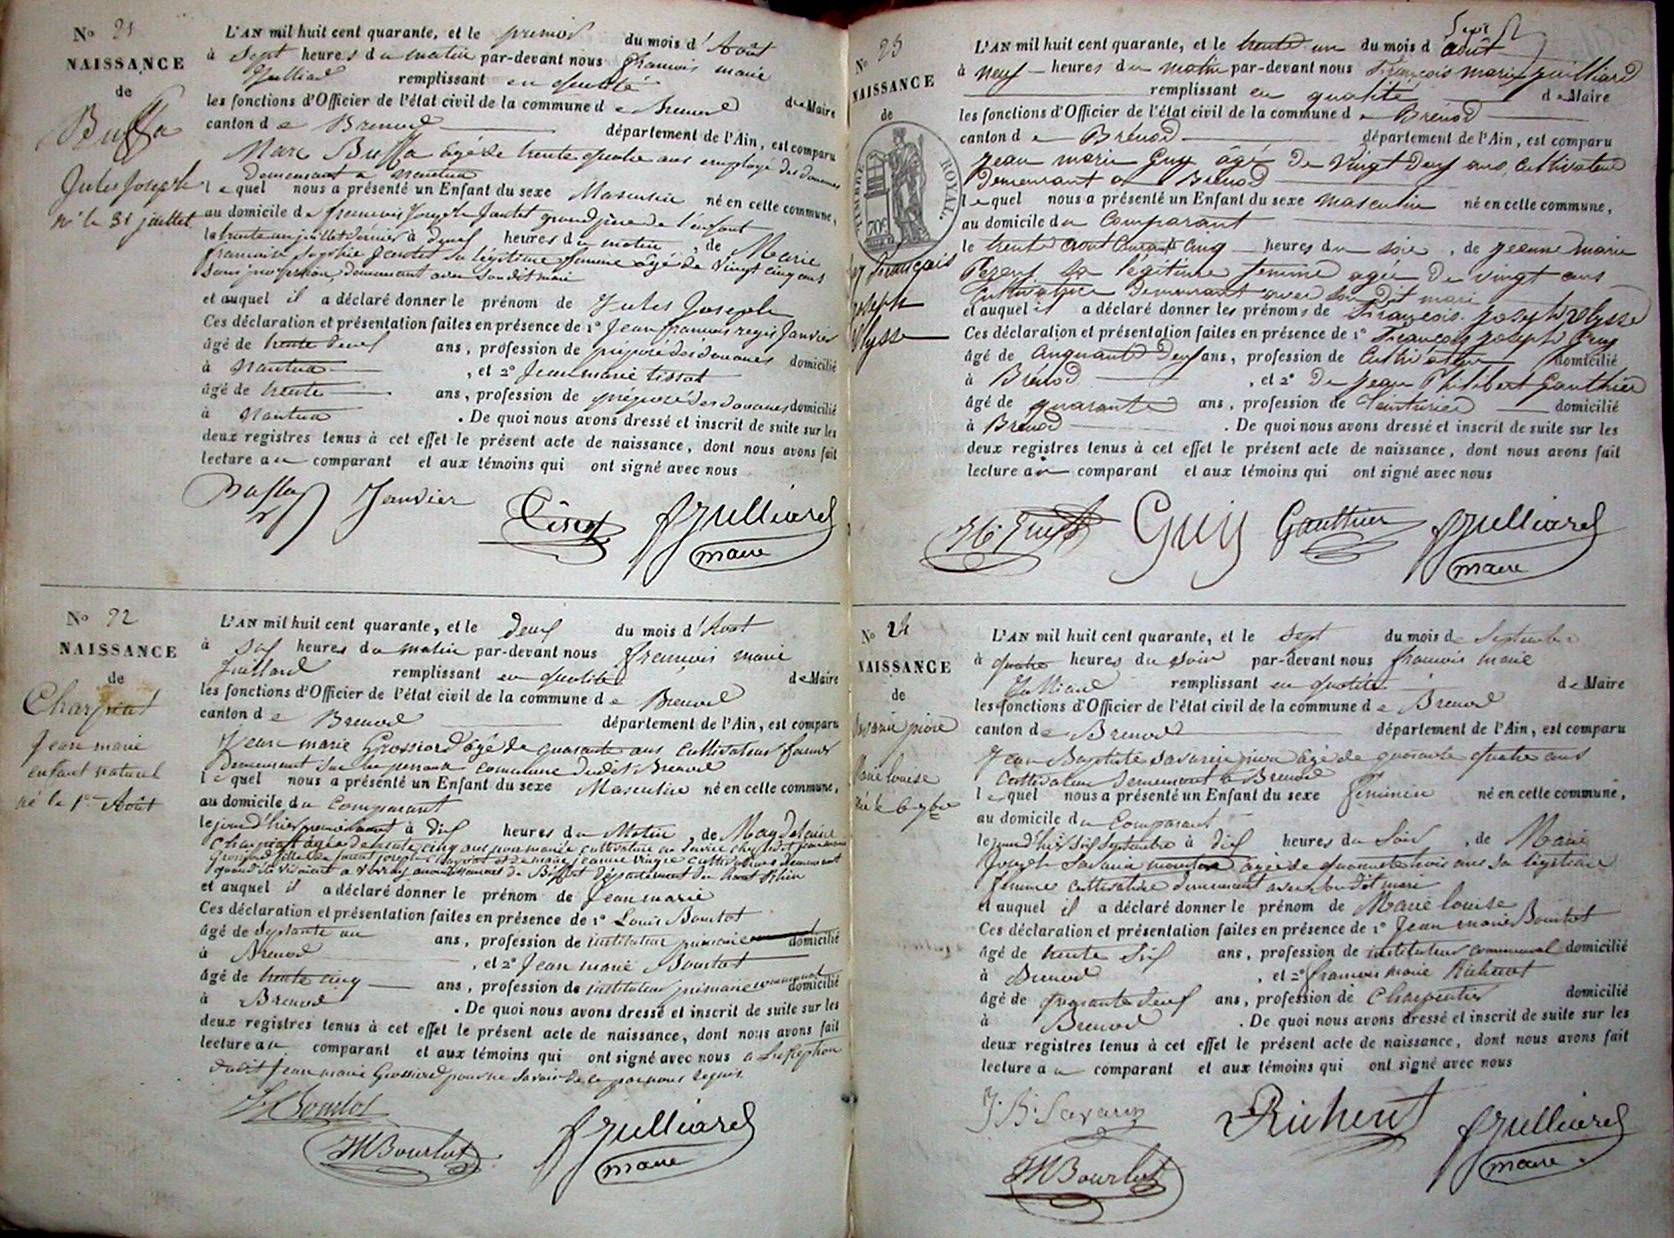 No 21
NAISSANCE
de
Buffa
Jules Joseph
né le 31 juillet
L'AN mil huit cent quarante, et le premier du mois d'Août
à sept heures du matin par-devant nous François marie
Julliard remplissant en qualité de Maire
les fonctions d'Officier de l'état civil de la commune de Brenod
canton de Brenod département de l'Ain, est comparu
Marc Buffa âgé de trente quatre ans employé des douanes
demeurant a nantua
lequel nous a présenté un Enfant du sexe Masculin né en cette commune,
au domicile de francois Joseph Jantet grand père de l'enfant
le trente un juillet dernier à deux heures du matin, de Marie
francoise Sophie Jantet sa légitime femme âgé de vingt cinq ans
sans profession, demeurant avec son dit mari
et auquel il a déclaré donner le prénom de Jules Joseph
Ces déclaration et présentation faites en présence de 1° Jean francois regis Janvier
âgé de trente deux ans, profession de préposé des douanes domicilié
à Nantua, et 2° Jean marie tissot
âgé de trente ans, profession de préposé des douanes domicilié
à Nantua. De quoi nous avons dressé et inscrit de suite sur les
deux registres tenus à cet effet le présent acte de naissance, dont nous avons fait
lecture au comparant et aux témoins qui ont signé avec nous
Buffa Janvier Tissot fJulliard
maire
No 22
NAISSANCE
de
Charpiot
Jean marie
enfant naturel
né le 1er Août
L'AN mil huit cent quarante, et le deux du mois d'Août
à six heures du matin par-devant nous francois marie
Julliard remplissant en qualité de Maire
les fonctions d'Officier de l'état civil de la commune de Brenod
canton de Brenod département de l'Ain, est comparu
Jean marie Grossiord âgé de quarante ans cultivateur fermier
demeurant sur commune dudit Brenod
lequel nous a présenté un Enfant du sexe Masculin né en cette commune,
au domicile du comparant
le jour d'hier premier aout à dix heures du Matin, de Magdelaine
Charpiot âgée de trente cinq ans non mariée cultivatrice au service chez ledit jean marie
Grossiord fille de joseph Charpiot et de marie jeanne cultivateurs demeurant
quand ils vivaient a arrondissement de Belfort département du haut Rhin
et auquel il a déclaré donner le prénom de Jean marie
Ces déclaration et présentation faites en présence de 1° Louis Bourlot
âgé de septante un ans, profession de instituteur primaire domicilié
à Brenod, et 2° Jean marie Bourlot
âgé de trente cinq ans, profession de instituteur primaire communal domicilié
à Brenod. De quoi nous avons dressé et inscrit de suite sur les
deux registres tenus à cet effet le présent acte de naissance, dont nous avons fait
lecture au comparant et aux témoins qui ont signé avec nous a l'exception
dudit Jean marie Grossiord pour ne savoir de ce par nous requis
Bourlot
JMBourlot fJulliard
maire
No 23
NAISSANCE
de
TIMBRE ROYAL
70c
Guy François
joseph
Ulysse
L'AN mil huit cent quarante, et le trente un du mois d'août
à neuf heures du matin par-devant nous François marie Juilliard
remplissant en qualité de Maire
les fonctions d'Officier de l'état civil de la commune de Brénod
canton de Brénod département de l'Ain, est comparu
Jean marie Guy âgé de vingt deux ans, cultivateur
demeurant a Brénod
lequel nous a présenté un Enfant du sexe masculin né en cette commune,
au domicile du comparant
le trente aout courant à cinq heures du soir, de jeanne marie
sa légitime femme agée de vingt ans
cultivatrice demeurant avec son dit mari
et auquel il a déclaré donner les prénoms de François joseph Ulysse
Ces déclaration et présentation faites en présence de 1° François joseph Guy
âgé de cinquante deux ans, profession de cultivateur domicilié
à Brénod, et 2° de jean Philibert Gauthier
âgé de quarante ans, profession de teinturier domicilié
à Brénod. De quoi nous avons dressé et inscrit de suite sur les
deux registres tenus à cet effet le présent acte de naissance, dont nous avons fait
lecture au comparant et aux témoins qui ont signé avec nous
Guy Gauthier fJulliard
maire
No 24
NAISSANCE
de
Savarin
Marie louise
née le 6 7bre
L'AN mil huit cent quarante, et le sept du mois de Septembre
à quatre heures du soir par-devant nous francois marie
Julliard remplissant en qualité de Maire
les fonctions d'Officier de l'état civil de la commune de Brenod
canton de Brenod département de l'Ain, est comparu
Jean Baptiste Savarin âgé de quarante quatre ans
cultivateur demeurant a Brenod
lequel nous a présenté un Enfant du sexe féminin né en cette commune,
au domicile du Comparant
le jour d'hier six septembre à dix heures du Soir, de Marie
Joseph Savarin âgée de quarante trois ans sa légitime
femme cultivatrice demeurant avec son dit mari
et auquel il a déclaré donner le prénom de Marie louise
Ces déclaration et présentation faites en présence de 1° Jean marie Bourlot
âgé de trente six ans, profession de instituteur communal domicilié
à Brenod, et 2° francois marie Richerot
âgé de quarante deux ans, profession de Charpentier domicilié
à Brenod. De quoi nous avons dressé et inscrit de suite sur les
deux registres tenus à cet effet le présent acte de naissance, dont nous avons fait
lecture au comparant et aux témoins qui ont signé avec nous
J. B. Savarin Richerot fJulliard
JMBourlot maire